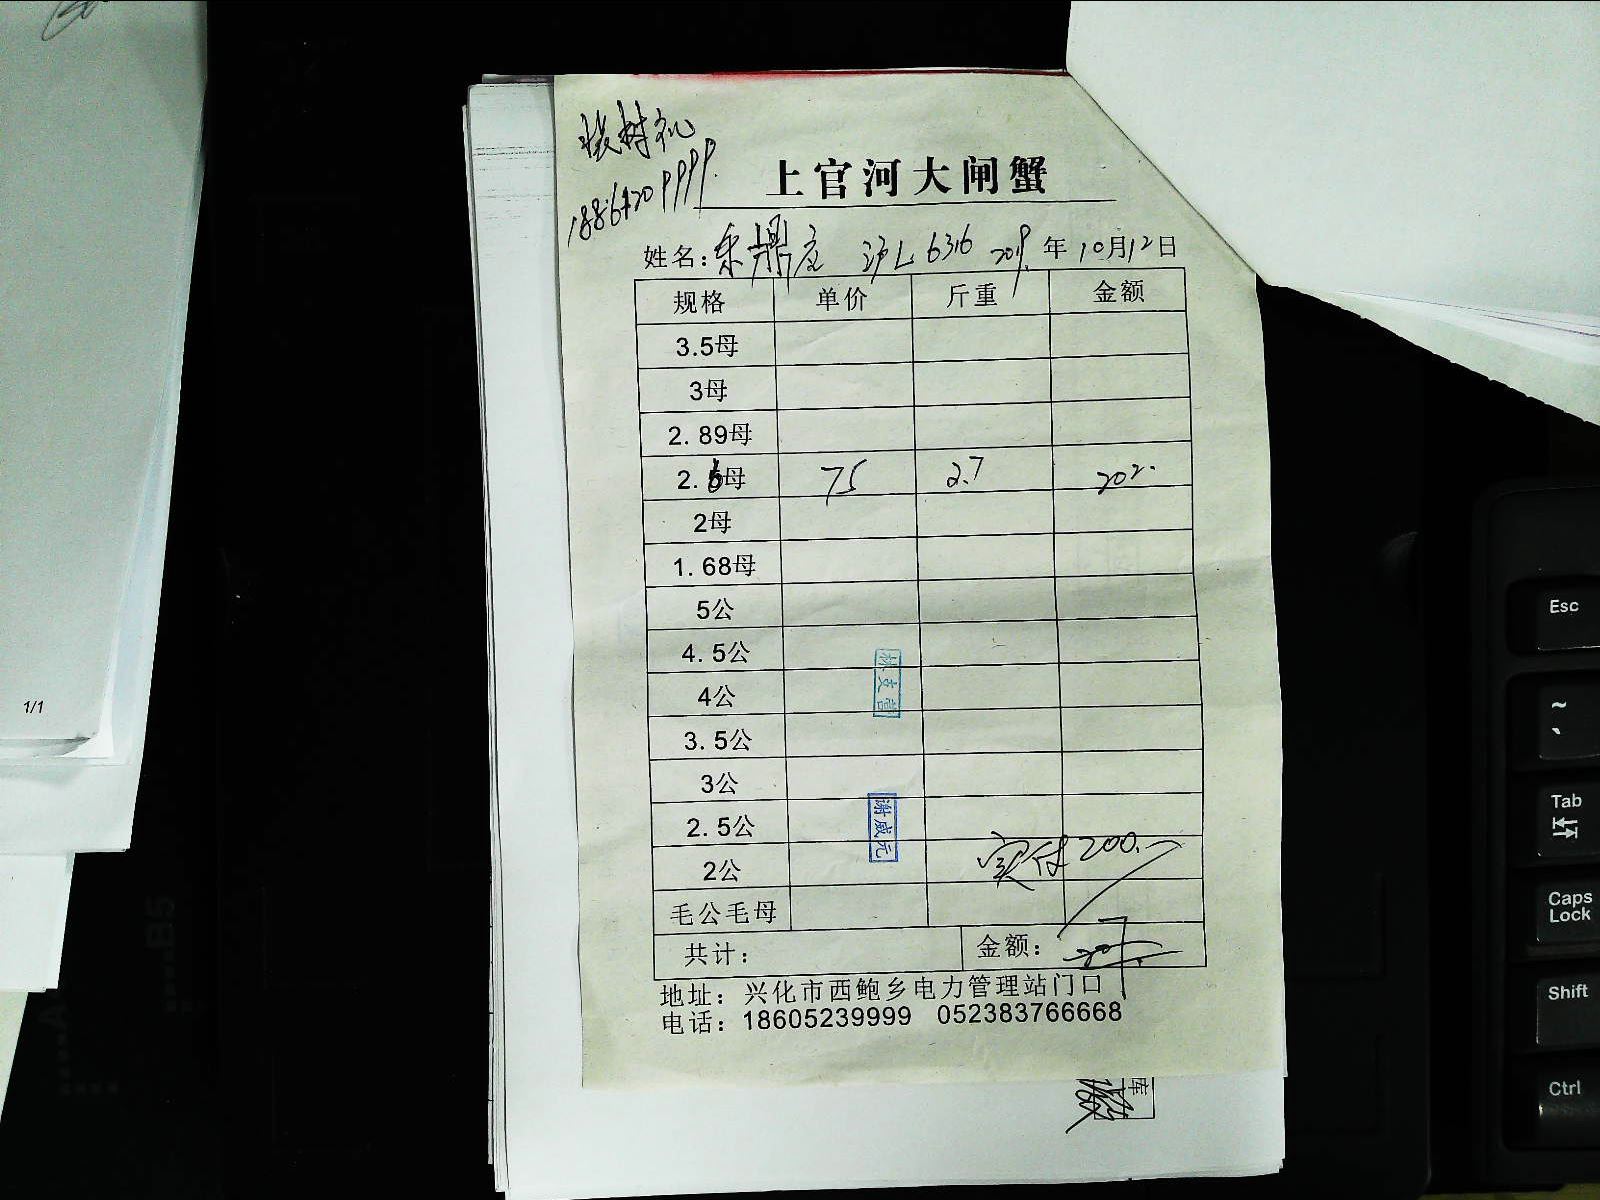 树礼
上官河大闸蟹
姓名：东鼎 沪L 6316 2019年10月12日
规格 单价 斤重 金额
3.5母
3母
2.89母
2.6母 75 2.7 202.
2母
1.68母
5公
4.5公
4公
3.5公
3公
2.5公
2公
实付200.—
毛公毛母
共计： 金额：
地址：兴化市西鲍乡电力管理站门口
电话：18605239999 052383766668
谢成元
库
1/1
B5
Esc
~
、
Tab
Caps Lock
Shift
Ctrl